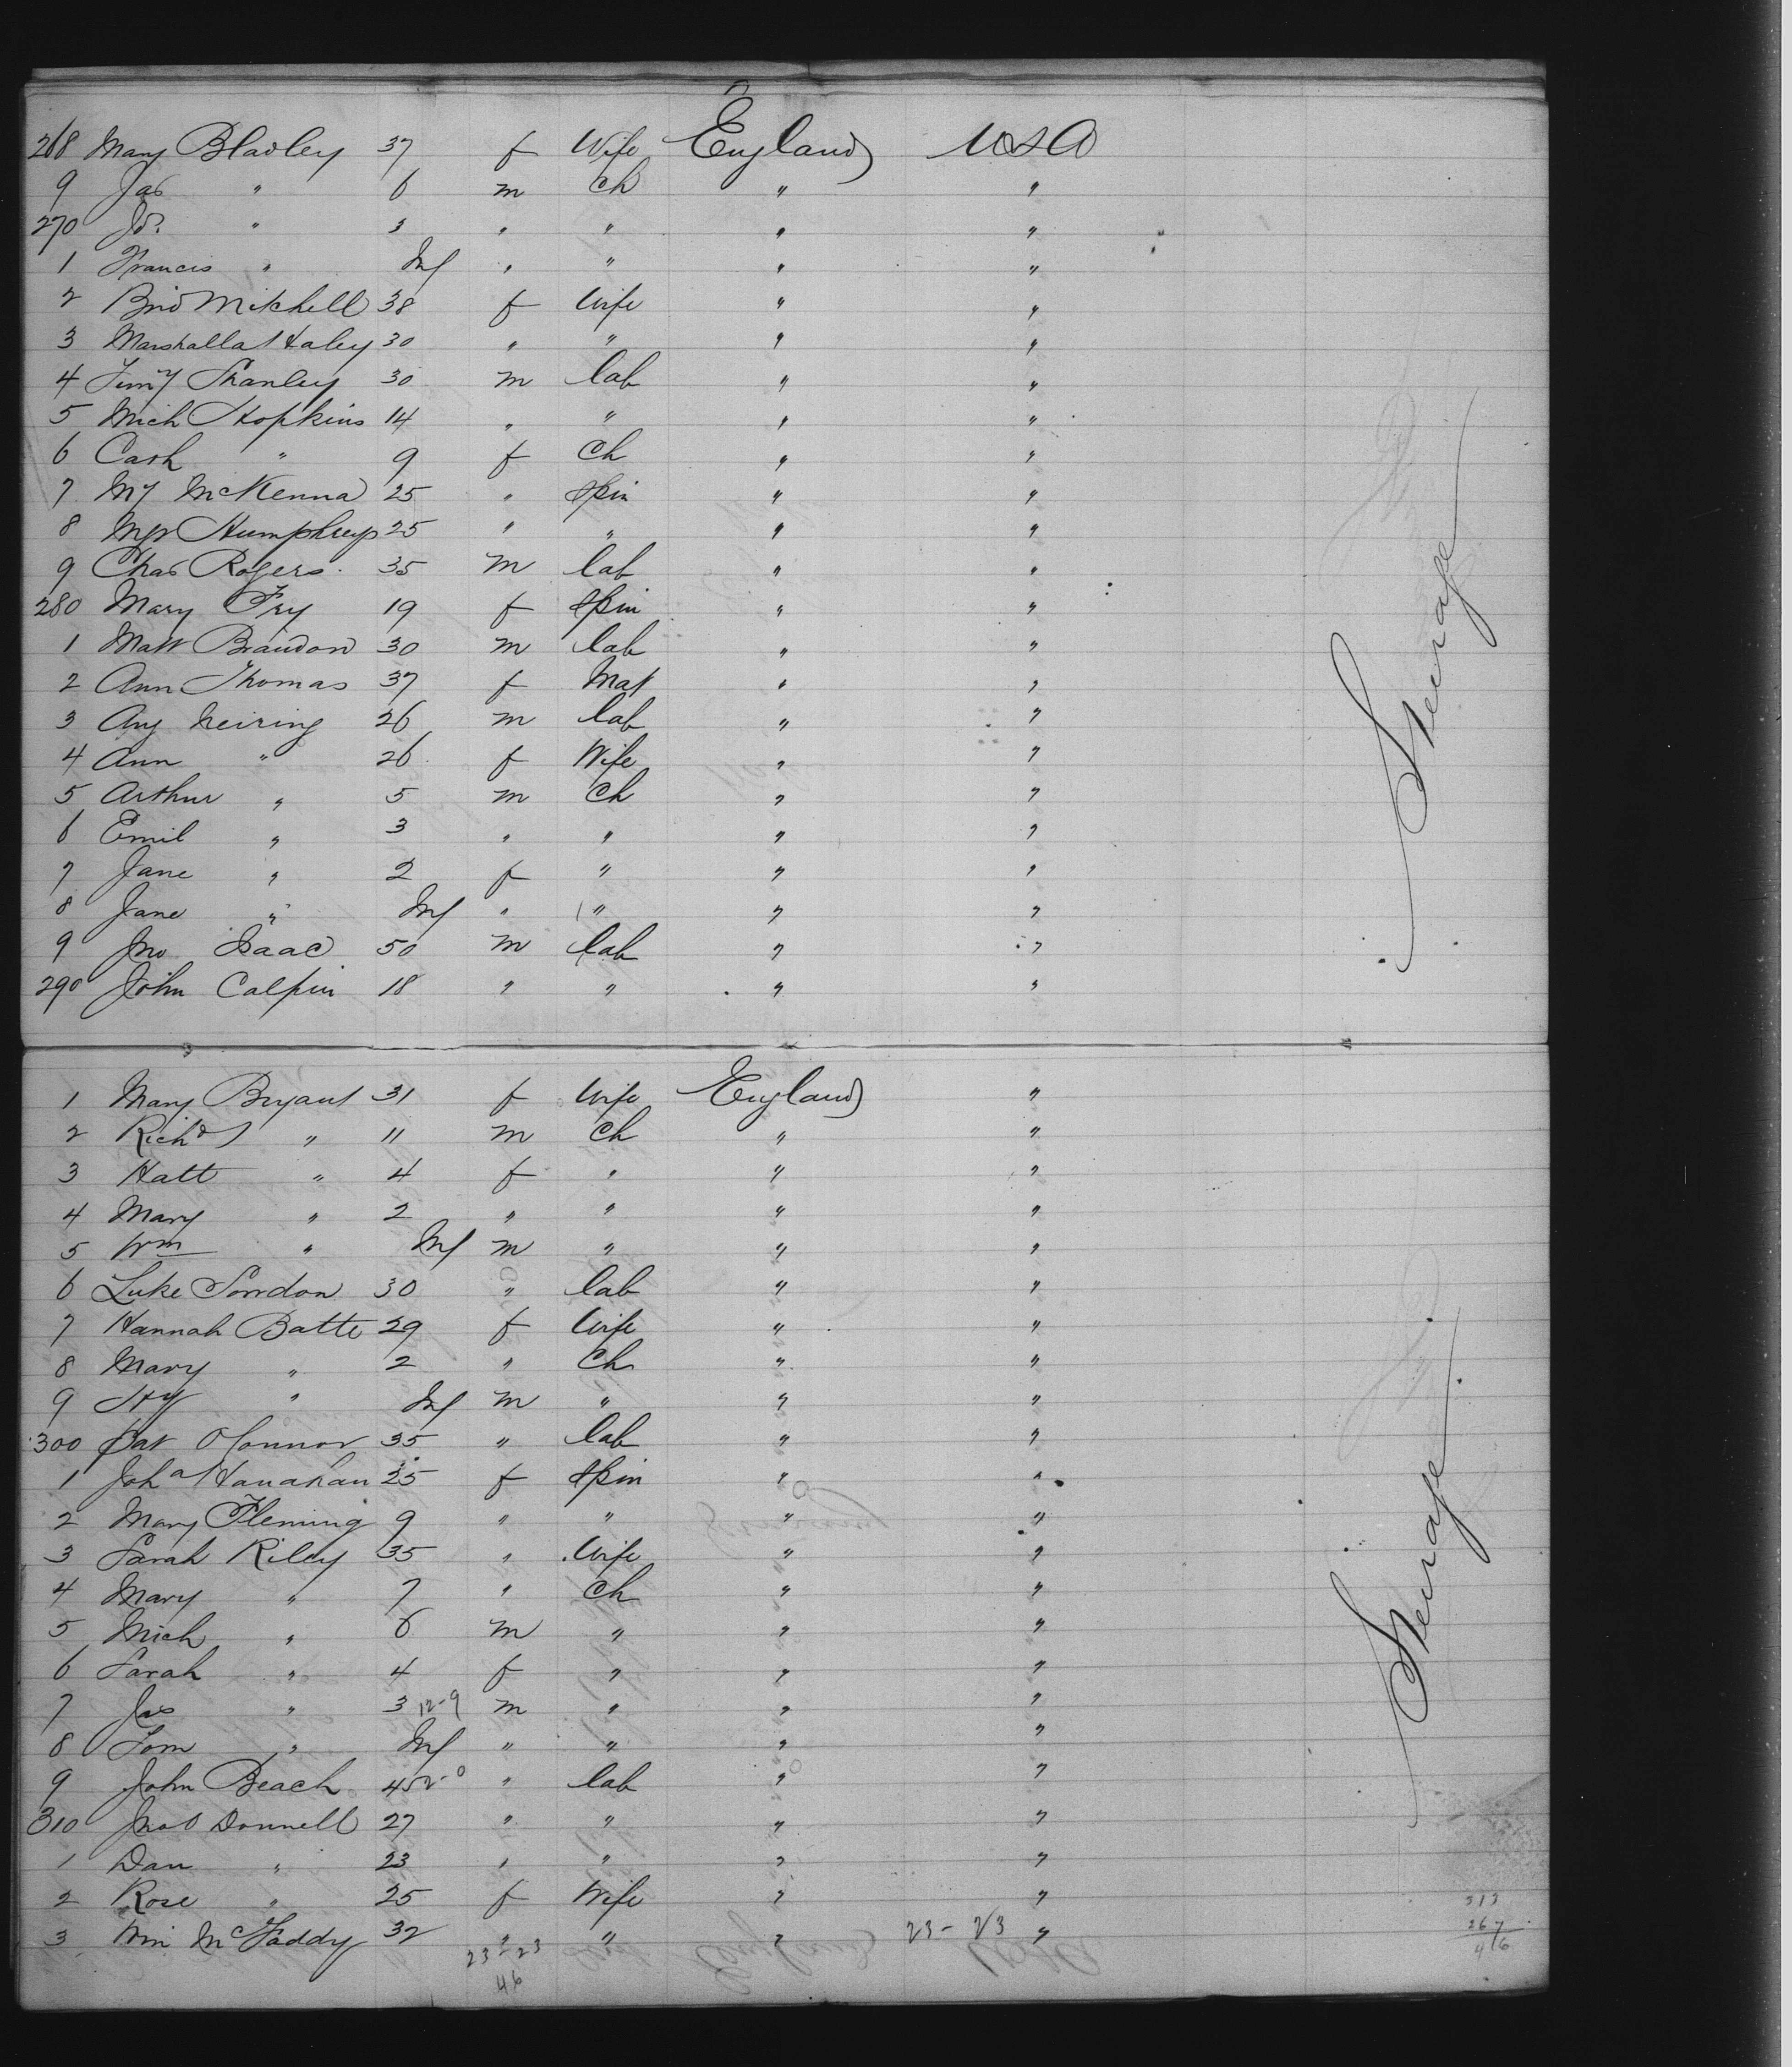 268 Mary Bladley 37 f Wife England USA
9 Jas " 6 m Ch " "
270 Jos " 3 " " " "
1 Francis " Inf " " " "
2 Brid Mitchell 38 f Wife " "
3 Marshalla Haley 30 " " " "
4 Timy Shanley 30 m lab " "
5 Mich Hopkins 14 " " " "
6 Cath " 9 f Ch " "
7 My McKenna 25 " Spin " "
8 Mgt Humphreys 25 " " " "
9 Chas Rogers 35 m lab " "
280 Mary Fry 19 f Spin " "
1 Matt Brandon 30 m lab " "
2 Ann Thomas 37 f Mat " "
3 Aug Neiring 26 m lab " "
4 Ann " 26 f Wife " "
5 Arthur " 5 m Ch " "
6 Emil " 3 " " " "
7 Jane " 2 f " " "
8 Jane " Inf " " " "
9 Jno Isaac 50 m lab " "
290 John Calpin 18 " " " "
Steerage
1 Mary Bryant 31 f Wife England "
2 Richd " 11 m Ch " "
3 Hatt " 4 f " " "
4 Mary " 2 " " " "
5 Wm " Inf m " " "
6 Luke Sordon 30 " lab " "
7 Hannah Batte 29 f Wife " "
8 Mary " 2 " Ch " "
9 Hy " Inf m " " "
300 Pat OConnor 35 " lab " "
1 Joha Hanahan 25 f Spin " "
2 Mary Fleming 9 " " " "
3 Sarah Riley 35 " Wife " "
4 Mary " 7 " Ch " "
5 Mich " 6 m " " "
6 Sarah " 4 f " " "
7 Jas " 3 12-9 m " " "
8 Tom " Inf " " " "
9 John Beach 45 2-0 " lab " "
310 Jno O Donnell 27 " " " "
1 Dan " 23 " " " "
2 Rose " 25 f Wife " "
3 Win McFaddy 32 " " " 23-23 "
23-23
46
Steerage
313
267
46